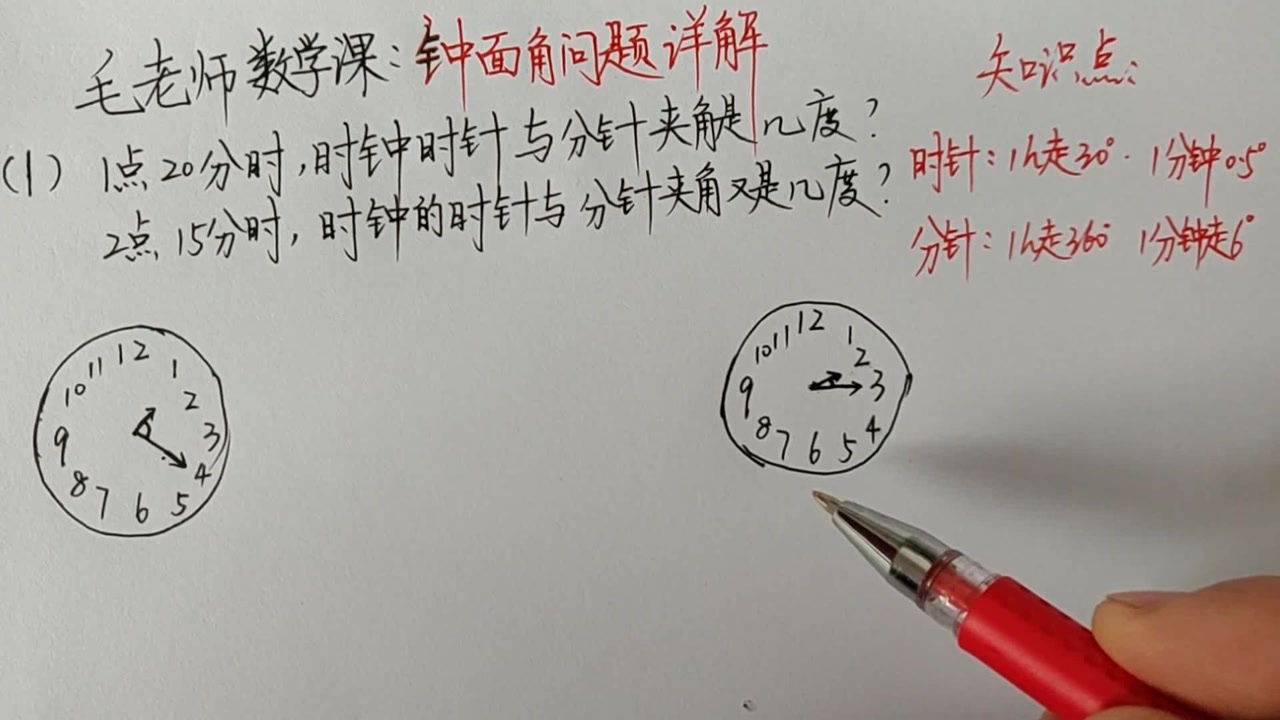 毛老师数学课:钟面角问题详解
(1) 1点20分时,时钟时针与分针夹角是几度?
2点15分时,时钟的时针与分针夹角又是几度?
知识点:
时针:1h走30°. 1分钟0.5°
分针:1h走360° 1分钟走6°
12 1 2 3 4 5 6 7 8 9 10 11
12 1 2 3 4 5 6 7 8 9 10 11